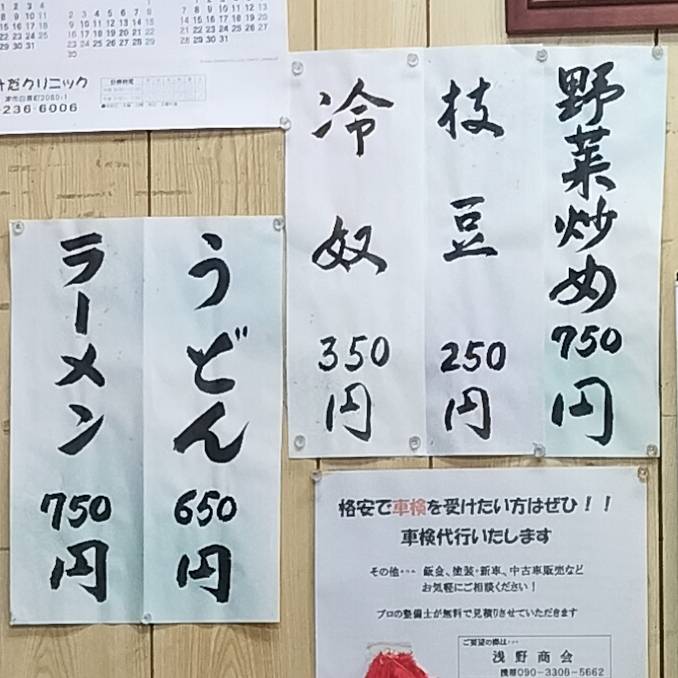 野菜炒め
750円
枝豆
250円
冷奴
350円
うどん
650円
ラーメン
750円
クリニック
236-6006
格安で車検を受けたい方はぜひ！！
車検代行いたします
その他・・・ 鈑金、塗装・新車、中古車販売など
お気軽にご相談ください！
プロの整備士が無料で見積りさせていただきます
ご要望の際は・・・
浅野商会
携帯090-3306-5662